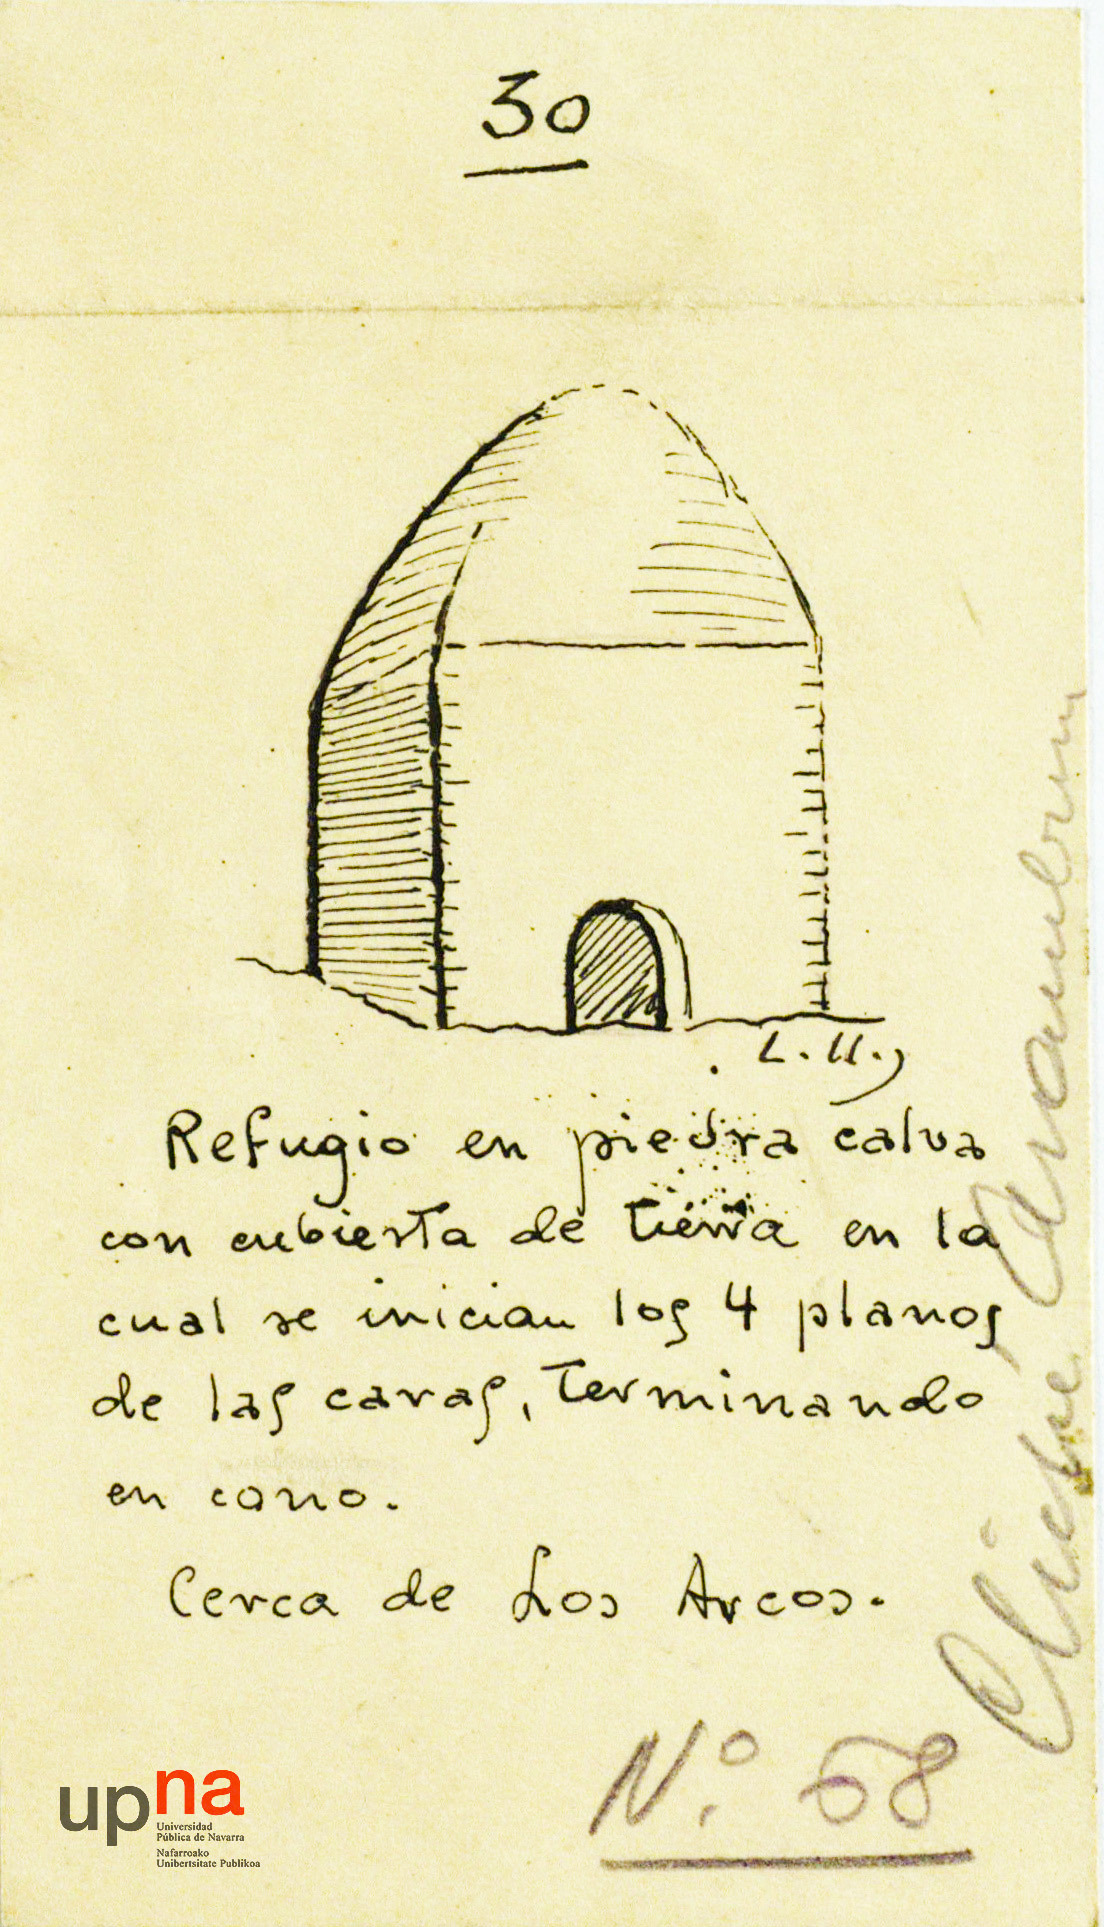 30
L. U.
Refugio en piedra calva
con cubierta de tierra en la
cual se inician los 4 planos
de las caras, terminando
en cono.
Cerca de Los Arcos.
Cliché
Nº. 58
upna
Universidad
Pública de Navarra
Nafarroako
Unibertsitate Publikoa